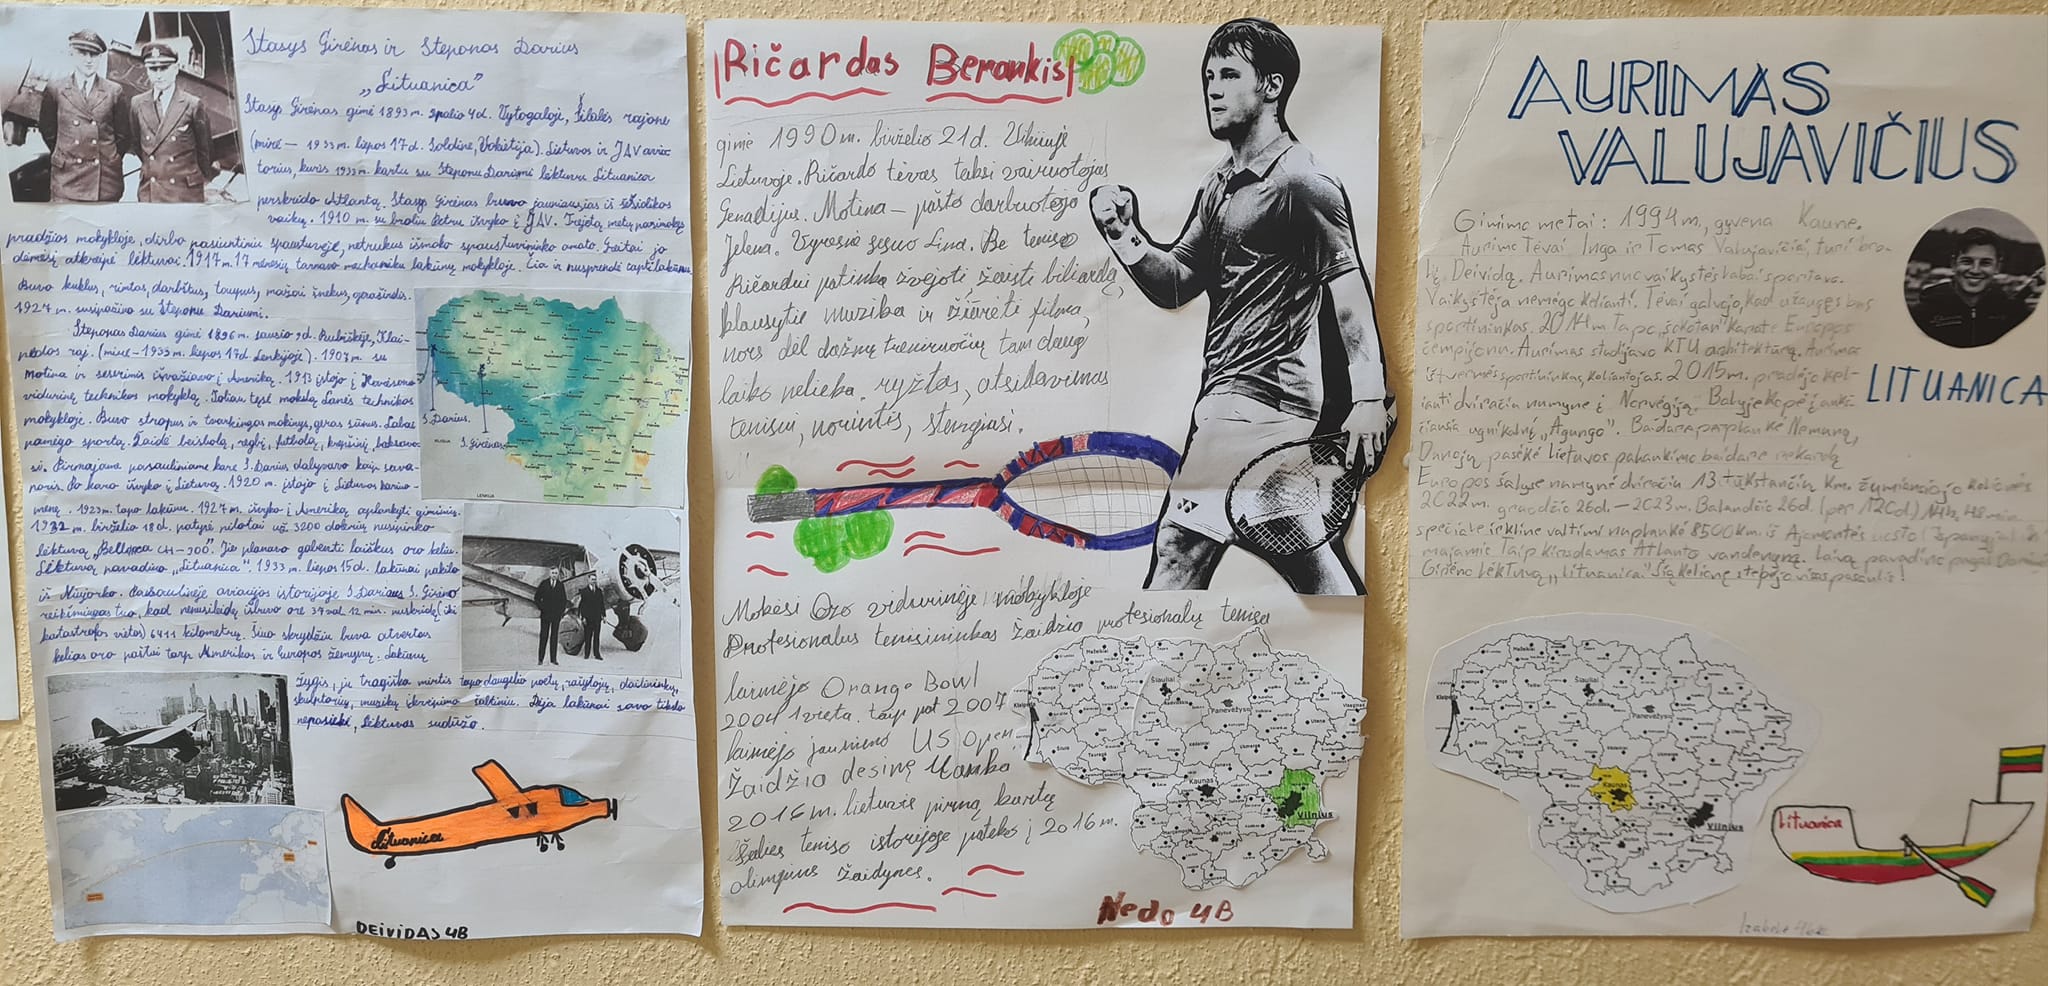 Stasys Girėnas ir Steponas Darius
„Lituanica"
Stasys Girėnas gimė 1893 m. spalio 4 d. Vytogaloje, Šilalės rajone
(mirė – 1933 m. liepos 17 d. Soldine, Vokietija). Lietuvos ir JAV avia-
torius, kuris 1933 m. kartu su Steponu Dariumi lėktuvu Lituanica
perskrido Atlantą. Stasys Girėnas buvo jauniausias iš šešiolikos
vaikų. 1910 m. su broliu Petru išvyko į JAV. Trejetą metų pasimokęs
pradžios mokykloje, dirbo pasiuntiniu spaustuvėje, netrukus išmoko spaustuvininko amato. Greitai jo
dėmesį atkreipė lėktuvai. 1917 m. 17 mėnesių tarnavo mechaniku lakūnų mokykloje. Čia ir nusprendė tapti lakūnu.
Buvo kuklus, rimtas, darbštus, taupus, mažai šnekus, apraširdis.
1927 m. susipažino su Steponu Dariumi.
Steponas Darius gimė 1896 m. sausio 9 d. Rubiškėje, Klai-
pėdos raj. (mirė – 1933 m. liepos 17 d. Lenkijoje). 1907 m. su
motina ir seserimis išvažiavo į Ameriką. 1913 įstojo į Havisono
vidurinę technikos mokyklą. Toliau tęsė mokslą Lanės technikos
mokykloje. Buvo stropus ir tvarkingas mokinys, geras sūnus. Labai
pamėgo sportą. Žaidė beisbolą, regbį, futbolą, krepšinį, boksavo-
si. Pirmajame pasauliniame kare S. Darius dalyvavo kaip sava-
noris. Po karo išvyko į Lietuvą. 1920 m. įstojo į Lietuvos kariuo-
menę. 1923 m. tapo lakūnu. 1927 m. išvyko į Ameriką aplankyti giminių.
1932 m. birželio 18 d. patyrę pilotai už 3200 dolerių nusipirko
lėktuvą „Bellanca CH-300". Jie planavo gabenti laiškus oro keliu.
Lėktuvą pavadino „Lituanica". 1933 m. liepos 15 d. lakūnai pakilo
iš Niujorko. Pasaulinėje aviacijos istorijoje S. Dariaus S. Girėno
reikšmingas tuo, kad nenusileidę išbuvo ore 37 val 12 min. nuskrido (iki
katastrofos vietos) 6411 kilometrų. Šiuo skrydžiu buvo atvertas
kelias oro paštui tarp Amerikos ir Europos žemynų. Lakūnų
žygis, jų tragiška mirtis tapo daugelio poetų, rašytojų, dailininkų,
skulptorių, muzikų įkvėpimo šaltiniu. Deja lakūnai savo tikslo
nepasiekė, lėktuvas sudužo.
S. Darius
S. Girėnas
LENKIJA
Lituanica
DEIVIDAS 4B
Ričardas Berankis
gimė 1990 m. birželio 21 d. Vilniuje
Lietuvoje. Ričardo tėvas taksi vairuotojas
Genadijus. Motina – pašto darbuotoja
Jelena. Vyresnė sesuo Lina. Be teniso
Ričardui patinka žvejoti, žaisti biliardą,
klausytis muzika ir žiūrėti filmą,
nors dėl dažnų treniruočių tam daug
laiko nelieka. ryžtas, atsidavimas
tenisui, norintis, stengiasi.
Mokėsi Ozo vidurinėje mokykloje
Profesionalus tenisininkas žaidžia profesionalų tenisą
laimėjo Orange Bowl
2004 1 vieta. taip pat 2007
laimėjo jaunimo US Open
Žaidžia dešinę ranka
2016 m. lietuvis pirmą kartą
šalies teniso istorijoje pateko į 2016 m.
olimpines žaidynes.
Šiauliai
Panevėžys
Kaunas
Vilnius
Nedo 4B
AURIMAS
VALUJAVIČIUS
LITUANICA
Gimimo metai: 1994 m, gyvena Kaune.
Aurimo Tėvai Inga ir Tomas Valujavičiai, turi bro-
lį Deividą. Aurimas nuo vaikystės labai sportavo.
Vaikystėje nemėgo kelianti. Tėvai galvojo, kad užaugęs bus
sportininkas. 2014 m Tapo „šokotan" karate Europos
čempionu. Aurimas studijavo KTU architektūrą. Aurimas
ištvermės sportininkas, keliautojas. 2015 m. pradėjo kel-
iauti dviračiu numynė į Norvegiją. Balyje kopė į aukš-
čiausią ugnikalnį „Agungo". Baidare perplaukė Nemuną,
Dunojų pasiekė Lietuvos paplaukimo baidare rekordą
Europos šalyse numynė dviračiu 13 tūkstančių km. Žymiausiojo kelionės
2022 m. gruodžio 26 d. – 2023 m. Balandžio 26 d. (per 120 d.) 14 h 48 min
specialę irkline valtimi nuplaukė 8500 km. iš Ajamontės uosto (Ispanija)
Majamį Taip kirsdamas Atlanto vandenyną. Laivą pavadino pagal Dariaus
Girėno Lėktuvą „Lituanica". Šią Kelionę stebėjo visas pasaulis!
Šiauliai
Panevėžys
Kaunas
Vilnius
Lituanica